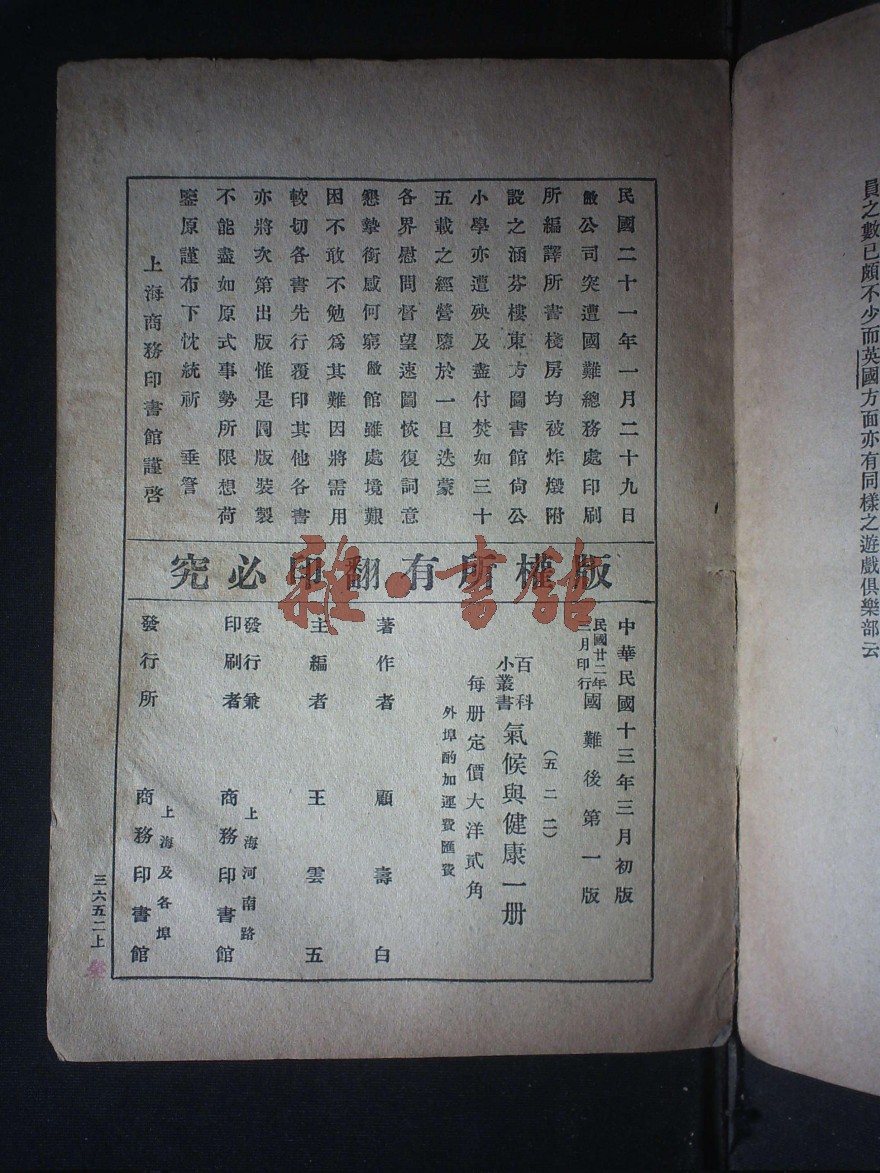 民國二十一年一月二十九日
敝公司突遭國難總務處印刷
所編譯所書棧房均被炸燬附
設之涵芬樓東方圖書館尙公
小學亦遭殃及盡付焚如三十
五載之經營隳於一旦迭蒙
各界慰問督望速圖恢復詞意
懇摯銜感何窮敝館雖處境艱
困不敢不勉爲其難因將需用
較切各書先行覆印其他各書
亦將次第出版惟是圖版裝製
不能盡如原式事勢所限想荷
鑒原謹布下忱統祈 垂詧
上海商務印書館謹啓
版權所有翻印必究
中華民國十三年三月初版
民國廿二年三月印行國難後第一版
(五二二)
百科小叢書 氣候與健康一册
每册定價大洋貳角
外埠酌加運費匯費
著作者 顧壽白
主編者 王雲五
發行兼印刷者 上海河南路 商務印書館
發行所 上海及各埠 商務印書館
三六五二上
雜·書館
員之數已頗不少而英國方面亦有同樣之遊戲俱樂部云